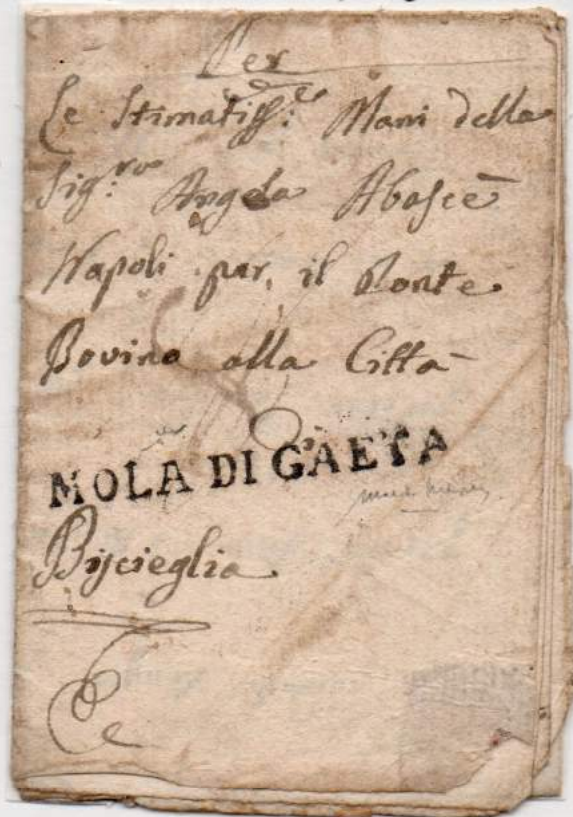 Per
Le Stimatiss:e Mani della
Sig:ra Angela Abascè
Napoli per il Ponte
Bovino alla Città
MOLA DI GAETA
Biscieglia